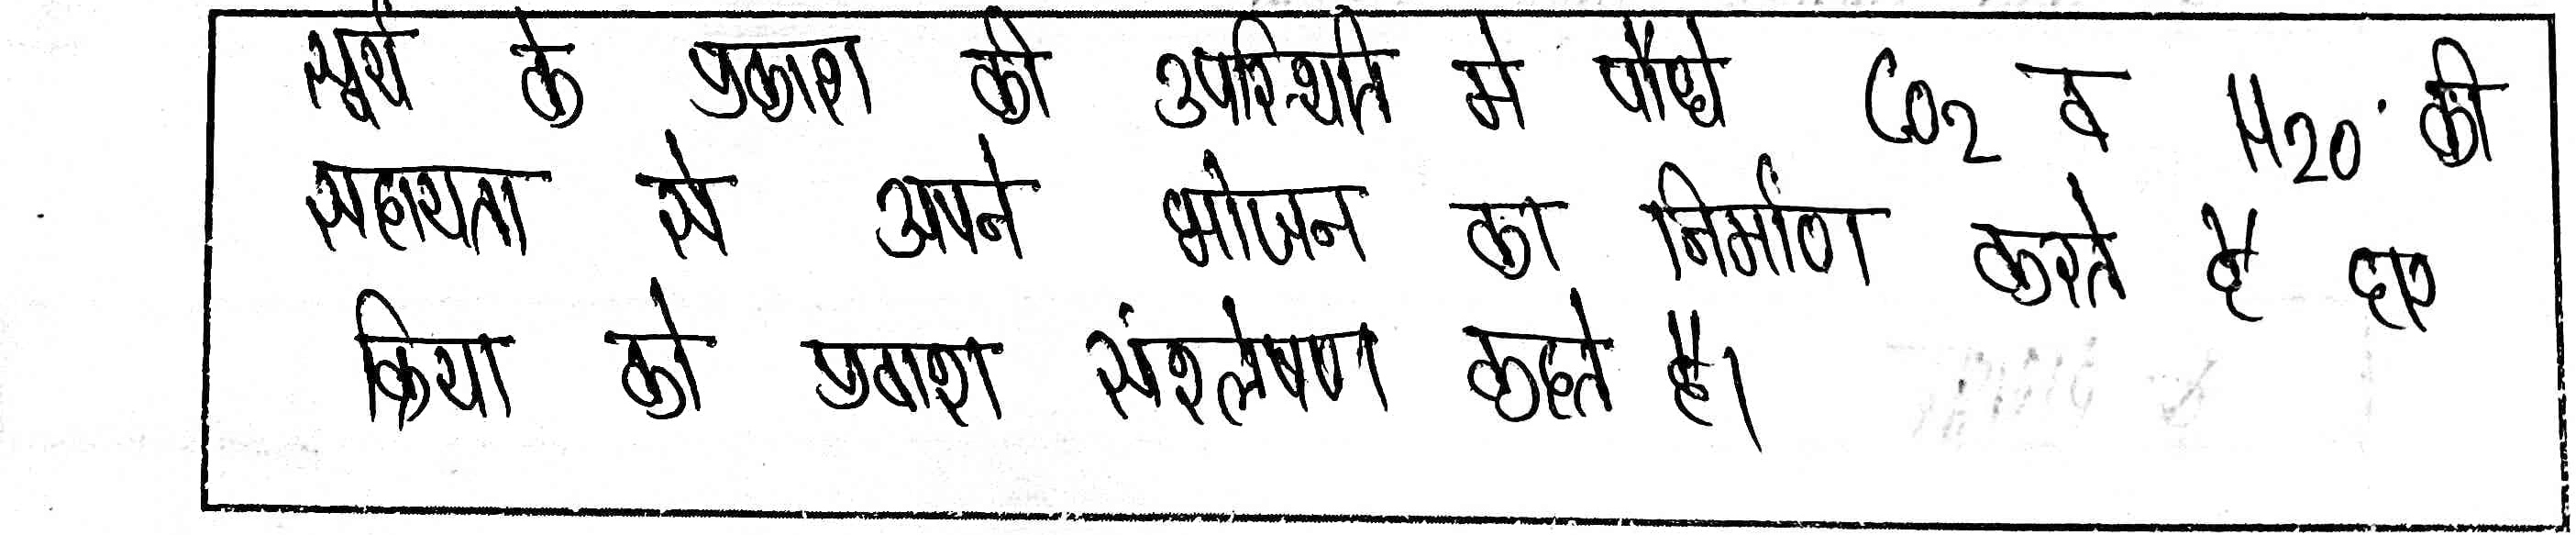 सूर्य के प्रकाश की उपस्थिति मे पौधे CO2 व H2O की
सहायता से अपने भोजन का निर्माण करते है
क्रिया को प्रकाश संश्लेषण कहते है।